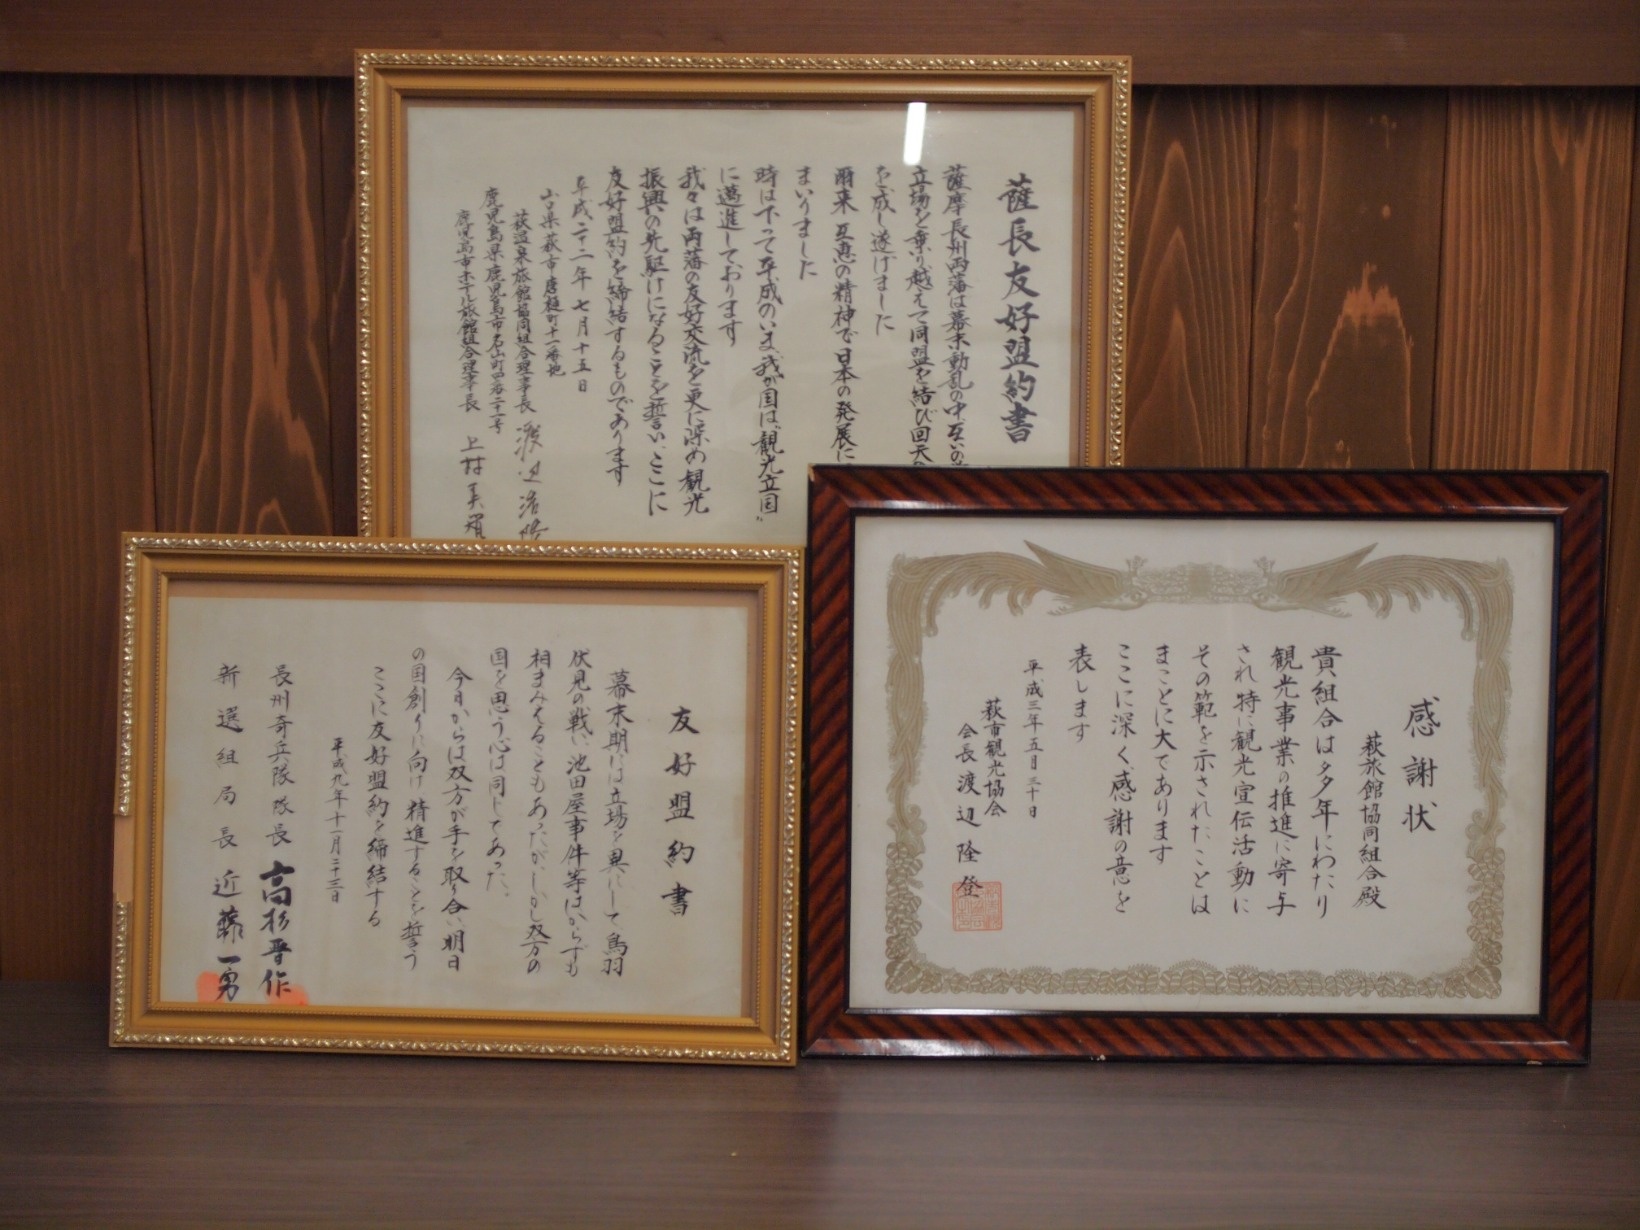 薩長友好盟約書
薩摩長州両藩は幕末動乱の中互いの
立場を乗り越えて同盟を結び回天の
を成し遂げました
爾来互恵の精神で日本の発展に
まいりました
時は下って平成のいま、我が国は"観光立国"
に邁進しております
我々は両藩の友好交流を更に深め観光
振興の先駆けになることを誓いここに
友好盟約を締結するものであります
平成二十二年七月十五日
山口県萩市唐樋町十一番地
萩温泉旅館協同組合理事長 渡辺
鹿児島県鹿児島市名山町四番二十一号
鹿児島市ホテル旅館組合理事長 上村
友好盟約書
幕末期には立場を異にして鳥羽
伏見の戦い池田屋事件等はからずも
相まみえることもあったがしかし双方の
国を思う心は同じであった。
今日からは双方が手を取り合い明日
の国創りに向け精進することを誓う
ここに友好盟約を締結する
平成九年十一月二十三日
長州奇兵隊隊長 高杉晋作
新選組局長 近藤勇
感謝状
萩旅館協同組合殿
貴組合は多年にわたり
観光事業の推進に寄与
され特に観光宣伝活動に
その範を示されたことは
まことに大であります
ここに深く感謝の意を
表します
平成三年五月三十日
萩市観光協会
会長渡辺隆登